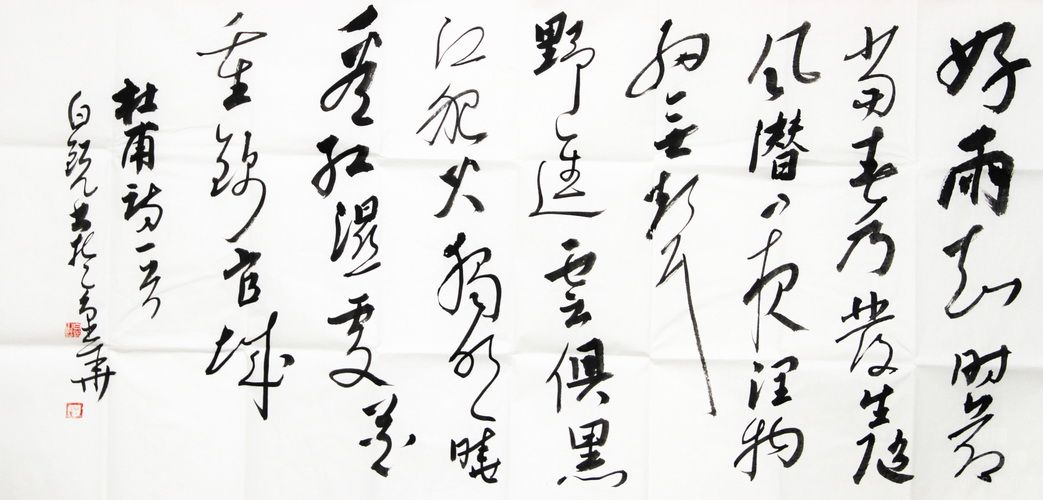 好雨知时節
當春乃發生随
風潜入夜润物
細無聲
野逕雲俱黑
江船火獨明曉
看红濕處花
重錦官城
杜甫詩一首
白 書於 華